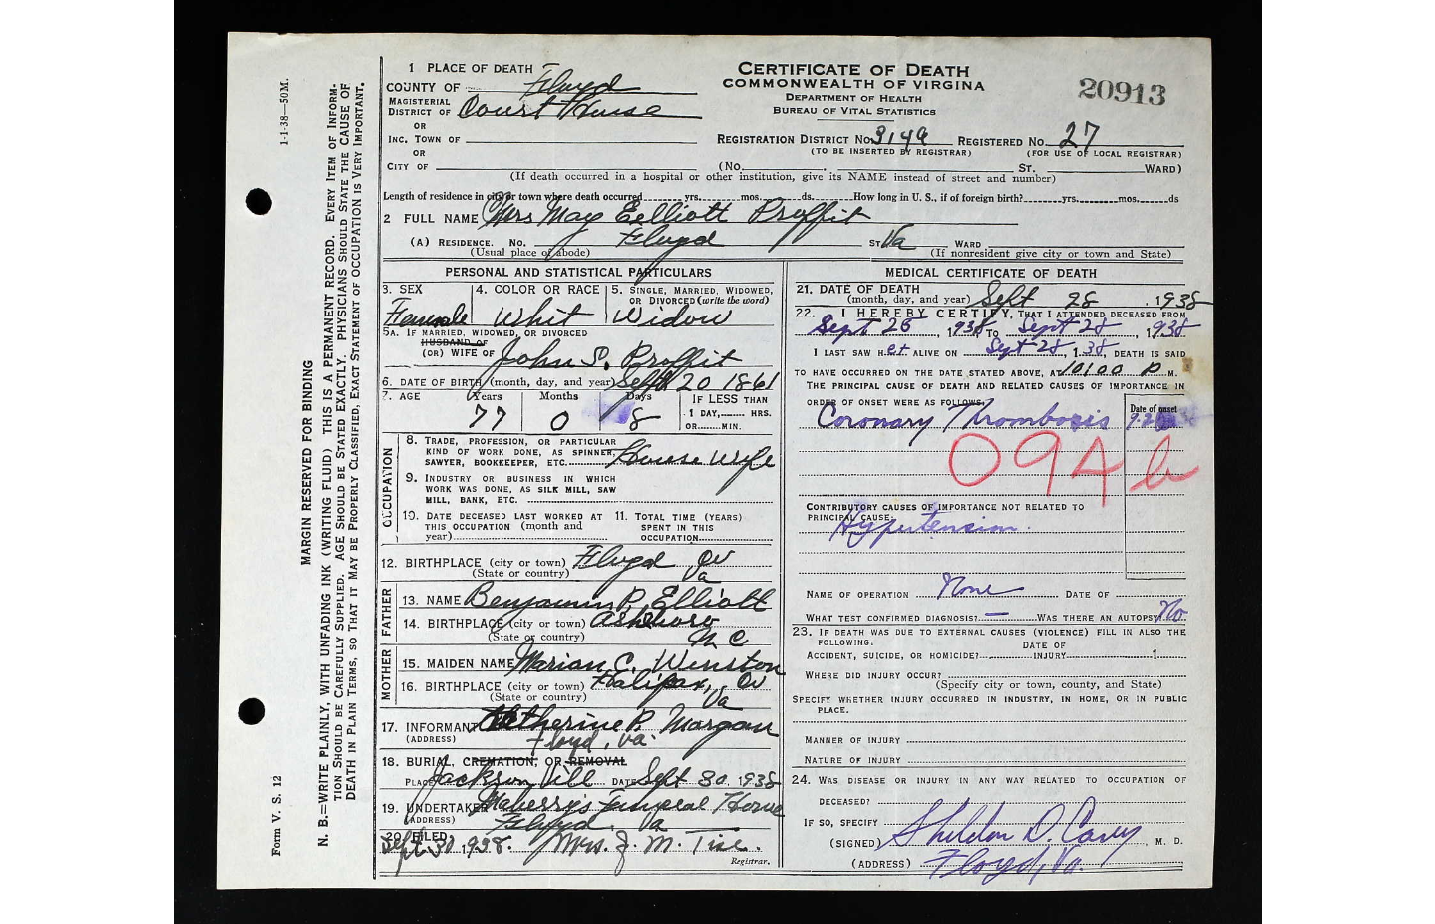 1-1-38—50M.
MARGIN RESERVED FOR BINDING
N. B.—WRITE PLAINLY, WITH UNFADING INK (WRITING FLUID) THIS IS A PERMANENT RECORD. EVERY ITEM OF INFORM-
TION SHOULD BE CAREFULLY SUPPLIED. AGE SHOULD BE STATED EXACTLY. PHYSICIANS SHOULD STATE THE CAUSE OF
DEATH IN PLAIN TERMS, SO THAT IT MAY BE PROPERLY CLASSIFIED. EXACT STATEMENT OF OCCUPATION IS VERY IMPORTANT.
Form V. S. 12
1 PLACE OF DEATH
COUNTY OF Floyd
MAGISTERIAL DISTRICT OF Court House
OR
INC. TOWN OF
OR
CITY OF
CERTIFICATE OF DEATH
COMMONWEALTH OF VIRGINIA
DEPARTMENT OF HEALTH
BUREAU OF VITAL STATISTICS
20913
REGISTRATION DISTRICT No. 3149 REGISTERED No. 27
(TO BE INSERTED BY REGISTRAR) (FOR USE OF LOCAL REGISTRAR)
(No. ST. WARD)
(If death occurred in a hospital or other institution, give its NAME instead of street and number)
Length of residence in city or town where death occurred yrs. mos. ds. How long in U. S., if of foreign birth? yrs. mos. ds
2 FULL NAME Mrs May Eelliott Proffit
(A) RESIDENCE. No. Floyd ST. Va WARD
(Usual place of abode) (If nonresident give city or town and State)
PERSONAL AND STATISTICAL PARTICULARS
3. SEX 4. COLOR OR RACE 5. SINGLE, MARRIED, WIDOWED,
OR DIVORCED (write the word)
Female Whit Widow
5A. IF MARRIED, WIDOWED, OR DIVORCED
HUSBAND OF
(OR) WIFE OF John S. Proffit
6. DATE OF BIRTH (month, day, and year) Sept 20 1861
7. AGE Years Months Days IF LESS THAN
77 0 8 1 DAY, HRS.
OR MIN.
OCCUPATION
8. TRADE, PROFESSION, OR PARTICULAR
KIND OF WORK DONE, AS SPINNER,
SAWYER, BOOKKEEPER, ETC. House wife
9. INDUSTRY OR BUSINESS IN WHICH
WORK WAS DONE, AS SILK MILL, SAW
MILL, BANK, ETC.
10. DATE DECEASED LAST WORKED AT 11. TOTAL TIME (YEARS)
THIS OCCUPATION (month and SPENT IN THIS
year) OCCUPATION
12. BIRTHPLACE (city or town) Floyd Co
(State or country) Va
FATHER
13. NAME Benjamin P. Elliott
14. BIRTHPLACE (city or town) Asheboro
(State or country) N C
MOTHER
15. MAIDEN NAME Marian C. Winston
16. BIRTHPLACE (city or town) Halifax, Co
(State or country) Va
17. INFORMANT Katherine P. Morgan
(ADDRESS) Floyd, Va.
18. BURIAL, CREMATION, OR REMOVAL
PLACE Jackson Vill DATE Sept 30, 1938
19. UNDERTAKER Maberry's Funeral Home
(ADDRESS) Floyd, Va
20. FILED
Sept. 30, 1938. Mrs. J. M. Tise.
Registrar.
MEDICAL CERTIFICATE OF DEATH
21. DATE OF DEATH
(month, day, and year) Sept 28, 1938
22. I HEREBY CERTIFY, THAT I ATTENDED DECEASED FROM
Sept 26, 1938, TO Sept 28, 1938
I LAST SAW HER ALIVE ON Sept 28, 1938, DEATH IS SAID
TO HAVE OCCURRED ON THE DATE STATED ABOVE, AT 10:00 P M.
THE PRINCIPAL CAUSE OF DEATH AND RELATED CAUSES OF IMPORTANCE IN
ORDER OF ONSET WERE AS FOLLOWS: Date of onset
Coronary Thrombosis
094 b
CONTRIBUTORY CAUSES OF IMPORTANCE NOT RELATED TO
PRINCIPAL CAUSE:
Hypertension.
NAME OF OPERATION None DATE OF
WHAT TEST CONFIRMED DIAGNOSIS? — WAS THERE AN AUTOPSY? No
23. IF DEATH WAS DUE TO EXTERNAL CAUSES (VIOLENCE) FILL IN ALSO THE
FOLLOWING. DATE OF
ACCIDENT, SUICIDE, OR HOMICIDE? INJURY
WHERE DID INJURY OCCUR?
(Specify city or town, county, and State)
SPECIFY WHETHER INJURY OCCURRED IN INDUSTRY, IN HOME, OR IN PUBLIC
PLACE.
MANNER OF INJURY
NATURE OF INJURY
24. WAS DISEASE OR INJURY IN ANY WAY RELATED TO OCCUPATION OF
DECEASED?
IF SO, SPECIFY
(SIGNED) Sheldon D. Carey, M. D.
(ADDRESS) Floyd, Va.